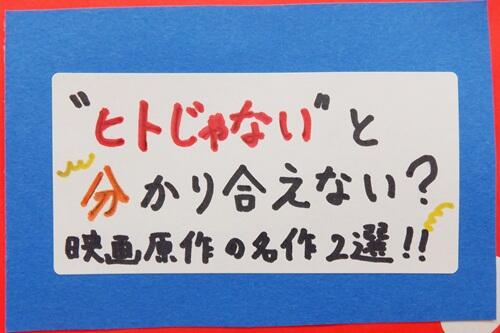 "ヒトじゃない"と
分かり合えない?
映画原作の名作2選!!